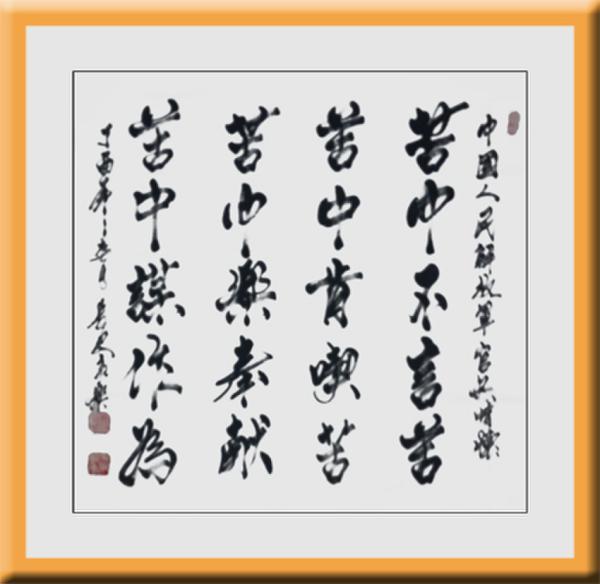 中國人民解放軍官兵
苦中不言苦
苦中肯喫苦
苦中樂奉献
苦中謀作為
丁酉年